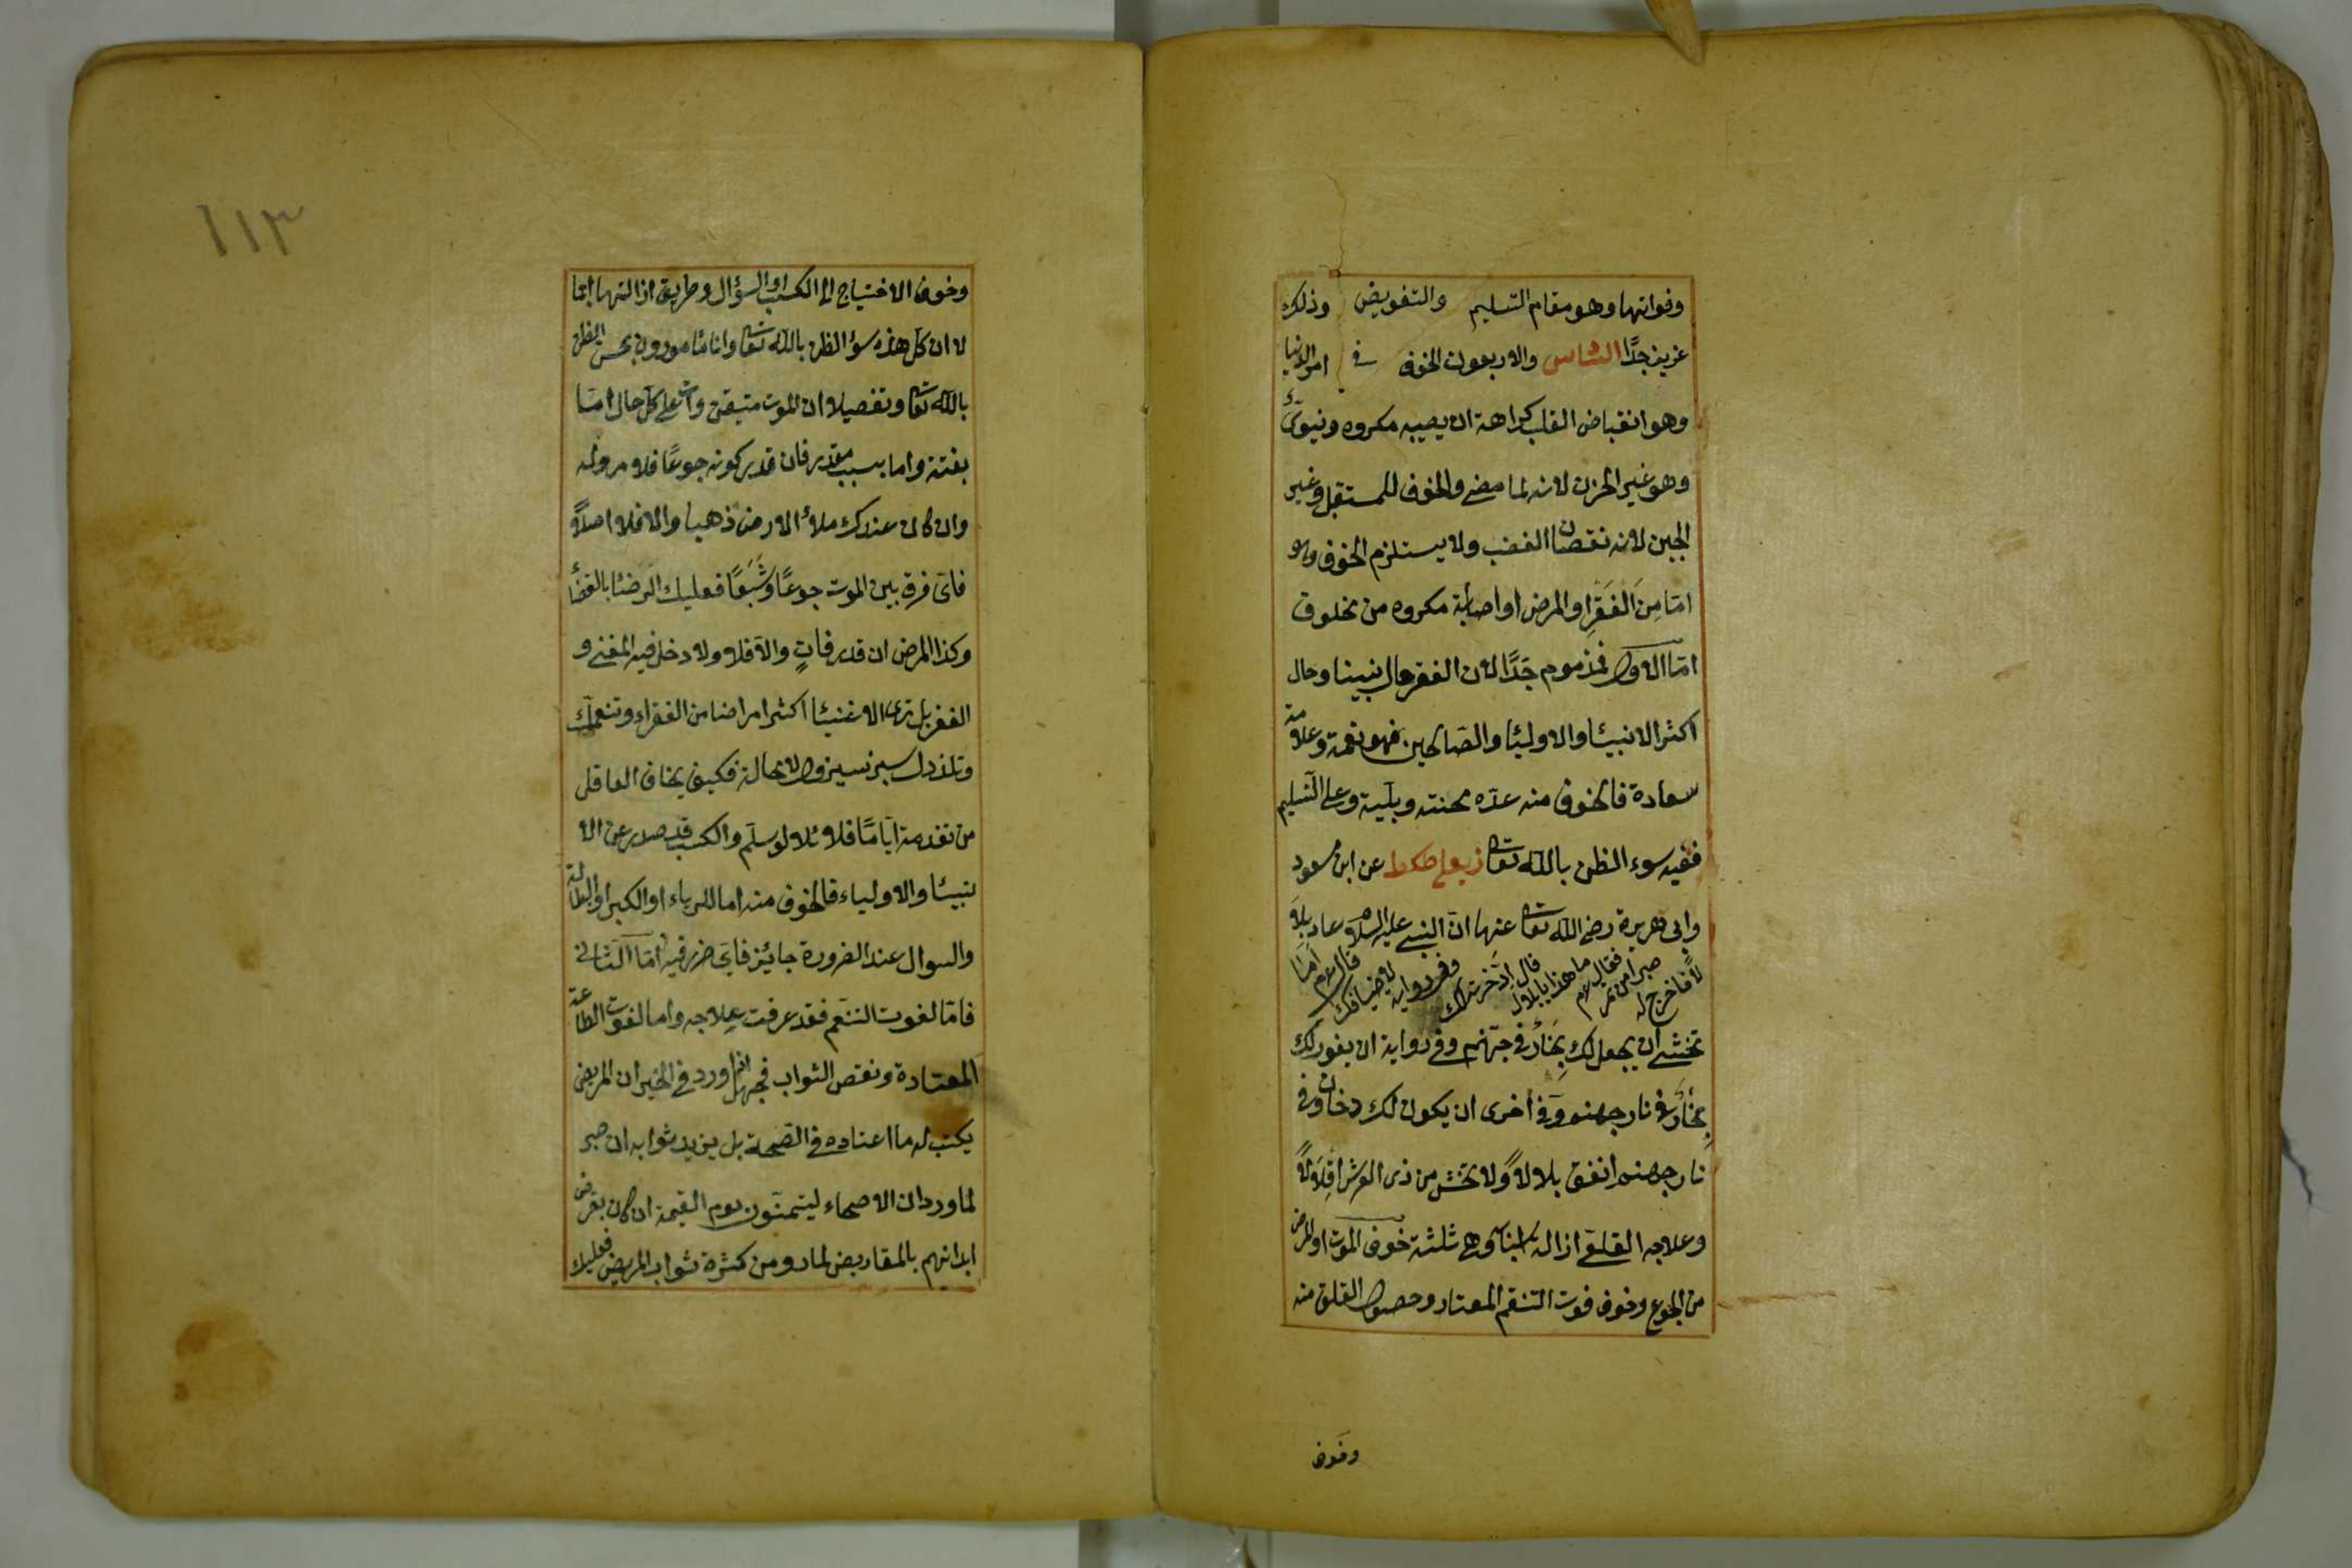 وفواتها وهو مقام التسليم والتفويض وذلك
عزيز جدًّا الثامن والاربعون الخوف في امر الدنيا
وهو انقباض القلب كراهة ان يصيبه مكروه دنيوىّ
وهو غير الحزن لانه لما مضى والخوف للمستقبل وغير
الجبن لانه نقصان الغضب ولا يستلزم الخوف وهو
امّا مِنَ الفَقْرِ او المرض او اصابة مكروه من مخلوق
امّا الاول فمذموم جَدًّا لان الفقر حال نبينا وحال
اكثر الانبيئا والاوليئا والصّالحين فهو نعمة وعلامة
سعادة فالخوف منه عدّه محنته وبلّية وعلى التسليم
ففيه سوء الظن بالله تعا زيعلى طكط عن ابن مسعود
وابى هريرة رضى الله تعا عنهما انّ النبى عليه السلام عاد بلا
لًا فاخرج له صبرا من تمر فقال عم ما هذا يا بلال قال ادّخرته لك وفى رواية لاضيافك قال عم امَا
تخشى ان يجعل لك بُخَارٌ فى جهّنم وفى رواية ان يفور لك
بُخَارٌ فى نار جهنم وَفى اخرى ان يكون لك دخان فى
نار جهنم انفق بلالاً ولا تخش من ذى العرش اقلالاً
وعلاجه القلعى ازالة اسبنابه وهى ثلثة خوف الموت او المرض
من الجوع وخوف فوت التنعّم المعتاد وحصول القلق منه
وخوف
١١٣
وخوف الاحتياج الى الكسب او السؤال وطريق ازالتها اجما
لا ان كل هذه سؤ الظن بالله تعا وانا مأمورون بحسن الظن
بالله تعا وتفصيلا ان الموت متيقن وات على كل حال امّا
بغتة واما بسبب مقدر فان قدر كونه جوعًا فلا مرد له
وان كان عندك ملأ الارض ذهبا والا فلا اصلاً
فاىّ فرق بين الموت جوعًا وشَبَعًا فعليك الرضئا بالقضأ
وكذا المرض ان قدر فاتٍ والاّ فلا ولا دخل فيه للغنى و
الفقر بل ترى الاغنيئا اكثر امراضا من الفقراء وتنعمك
وتلذذك سيزول لا محالة فكيف يخاف العاقل
من تقدمه ايّامًا قلائلا لو سلّم والكسب قد صدر عن الا
نبيئا والاولياء فالخوف منه اما للرياء او الكبر او البطالة
والسوال عند الضرورة جايئز فاىّ ضرر فيه امّا الثانى
فامّا لفوت التنعّم فقد عرفت عِلاجه واما لفوت الطاعة
المعتادة ونقص الثواب فجهل لما ورد فى الخبر ان المريض
يكتب له ما اعتاده فى الصّحة بل يزيد ثوابه ان صبر
لما ورد ان الاصحاء ليتمنّون يوم القيمة ان كان يقرض
ابدانهم بالمقاريض لما رو من كثرة ثواب المريض فعليك